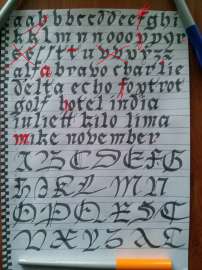 a a b b c c d d e e f g h i
k k l m n n o o o p p q r
s f s t t t u v v v y r z z
alfa bravo charlie
delta echo foxtrot
golf hotel india
juliett kilo lima
mike november
A B C D E F G
H I K L M N
O P Q R S T
V X Y Z